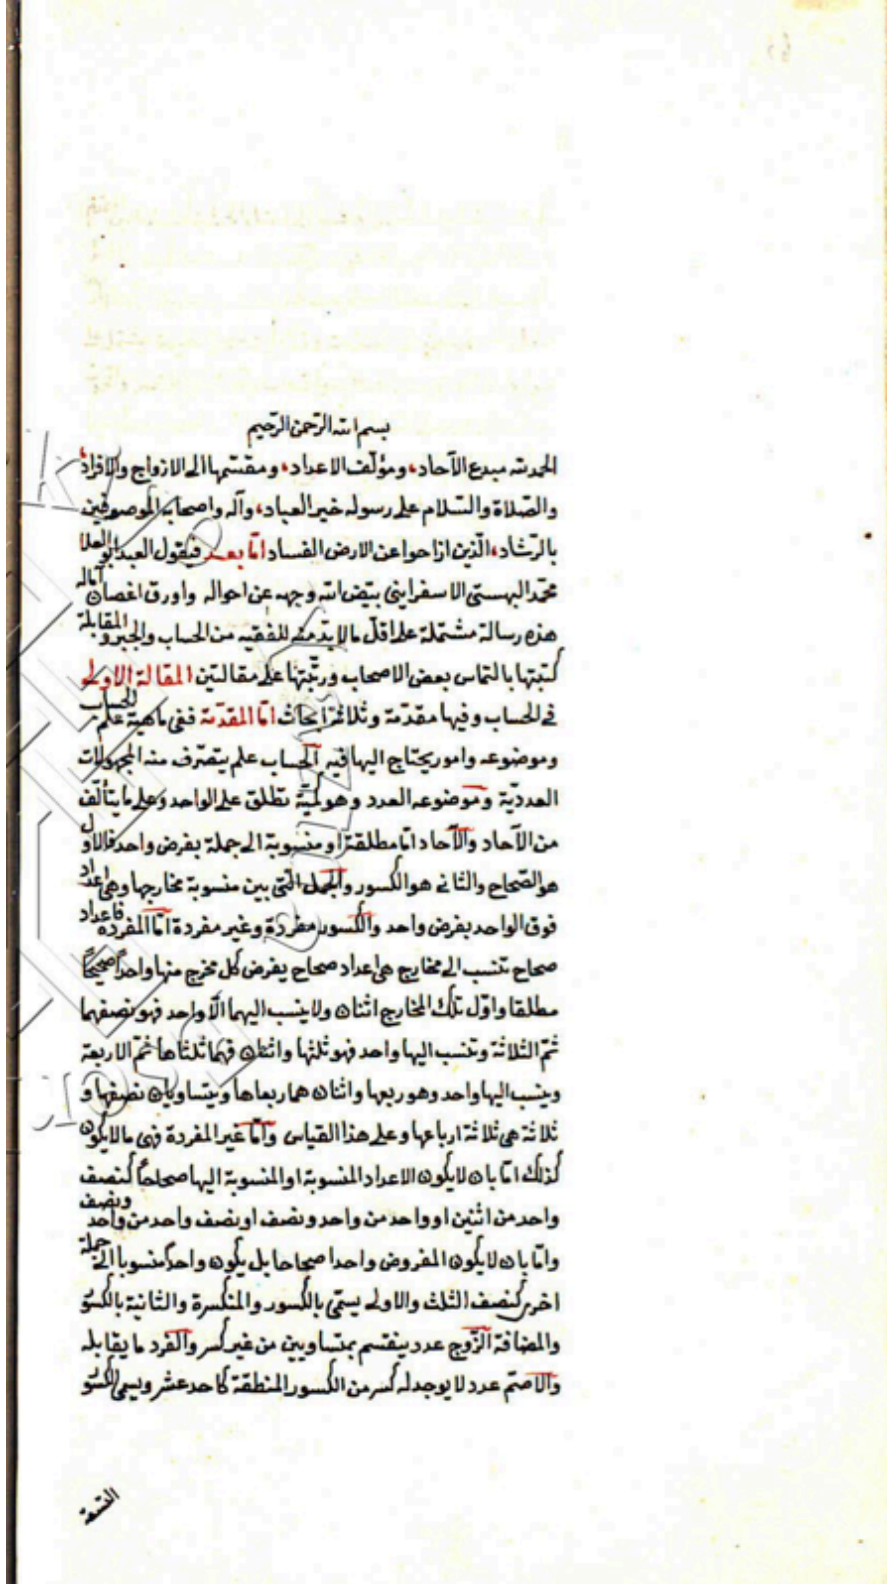 بسم الله الرّحمن الرّحيم
الحمد لله مبدع الآحاد، ومؤلّف الاعداد، ومقسّمها الى الازواج والافراد،
والصّلاة والسّلام على رسوله خير العباد، وآله واصحابه الموصوفين
بالرّشاد، الّذين ازاحوا عن الارض الفساد امّا بعد فيقول العبد ابو العلا
محمّد البهستى الاسفراينى بيّض الله وجهه عن احواله واورق اغصان آماله
هذه رسالة مشتملة على اقلّ مالابدّ منه للفقيه من الحساب والجبر والمقابلة
كتبتها بالتماس بعض الاصحاب ورتّبتها على مقالتين المقالة الاولى
فى الحساب وفيها مقدّمة وثلاثة ابحاث امّا المقدّمة ففى ماهية علم الحساب
وموضوعه وامور يحتاج اليها فيه الحساب علم يتصرّف منه المجهولات
العدديّة وموضوعه العدد وهو كميّة تطلق على الواحد وعلى مايتألّف
من الآحاد والآحاد امّا مطلقة او منسوبة الى جملة بفرض واحد فالاول
هو الصّحاح والثانى هو الكسور والجمل الّتى بين منسوبة مخارجها وهى اعداد
فوق الواحد بفرض واحد والكسور مفردة وغير مفردة امّا المفردة فاعداد
صحاح تنسب الى مخارج هى اعداد صحاح يفرض كل مخرج منها واحداً صحيحًا
مطلقا واوّل تلك المخارج اثنان ولا ينسب اليهما الّا واحد فهو نصفهما
ثمّ الثلاثة وتنسب اليها واحد فهو ثلثها واثنان فهما ثلثاها ثمّ الاربعة
وينسب اليها واحد وهو ربعها واثنان هما ربعاها ويتساويان نصفها و
ثلاثة هى ثلاثة ارباعها وعلى هذا القياس وامّا غير المفردة فهى مالايكون
كذلك امّا بان لايكون الاعداد المنسوبة او المنسوبة اليها صحاحاً كنصف
واحد من اثنين او واحد من واحد ونصف او نصف واحد من واحد ونصف
وامّا بان لايكون المفروض واحدا صحاحا بل يكون واحداً منسوبا الى جملة
اخرى كنصف الثلث والاولى يسمّى بالكسور والمنكسرة والثانية بالكسور
والمضافة الزّوج عدد ينقسم بمتساويين من غير كسر والفرد ما يقابله
والاصمّ عدد لا يوجد له كسر من الكسور المنطقة كاحد عشر ويسمى الكسور
القسمة